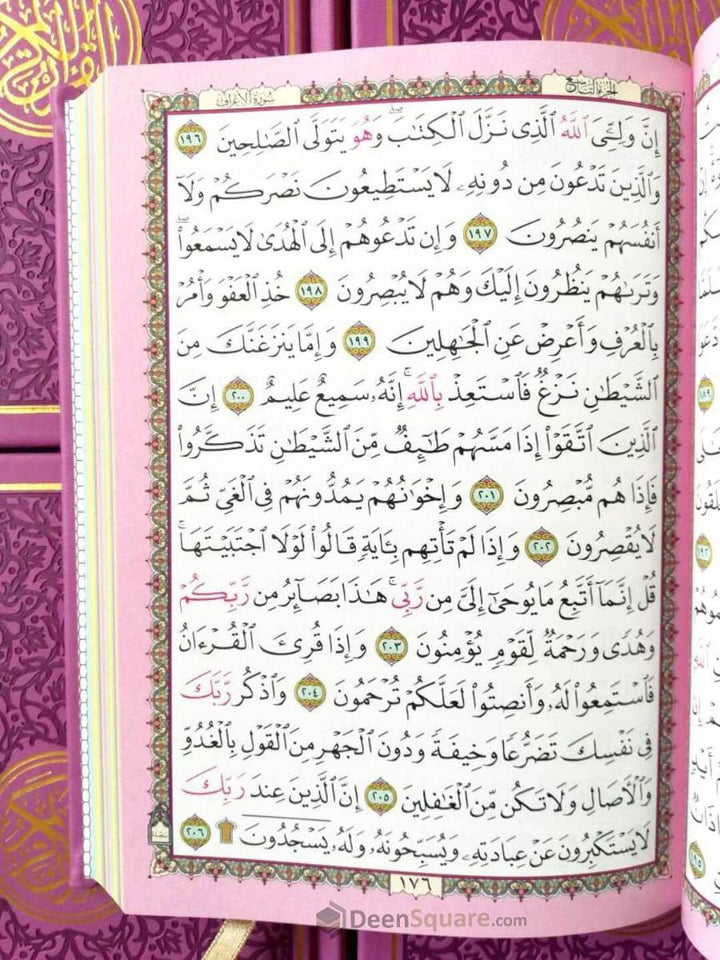 سُورَةُ الأَعْرَافِ
الجزء التاسع
إِنَّ وَلِـِّۧيَ ٱللَّهُ ٱلَّذِى نَزَّلَ ٱلْكِتَٰبَ ۖ وَهُوَ يَتَوَلَّى ٱلصَّٰلِحِينَ ١٩٦
وَٱلَّذِينَ تَدْعُونَ مِن دُونِهِۦ لَا يَسْتَطِيعُونَ نَصْرَكُمْ وَلَآ
أَنفُسَهُمْ يَنصُرُونَ ١٩٧ وَإِن تَدْعُوهُمْ إِلَى ٱلْهُدَىٰ لَا يَسْمَعُوا۟ ۖ
وَتَرَىٰهُمْ يَنظُرُونَ إِلَيْكَ وَهُمْ لَا يُبْصِرُونَ ١٩٨ خُذِ ٱلْعَفْوَ وَأْمُرْ
بِٱلْعُرْفِ وَأَعْرِضْ عَنِ ٱلْجَٰهِلِينَ ١٩٩ وَإِمَّا يَنزَغَنَّكَ مِنَ
ٱلشَّيْطَٰنِ نَزْغٌ فَٱسْتَعِذْ بِٱللَّهِ ۚ إِنَّهُۥ سَمِيعٌ عَلِيمٌ ٢٠٠ إِنَّ
ٱلَّذِينَ ٱتَّقَوْا۟ إِذَا مَسَّهُمْ طَٰٓئِفٌ مِّنَ ٱلشَّيْطَٰنِ تَذَكَّرُوا۟
فَإِذَا هُم مُّبْصِرُونَ ٢٠١ وَإِخْوَٰنُهُمْ يَمُدُّونَهُمْ فِى ٱلْغَىِّ ثُمَّ
لَا يُقْصِرُونَ ٢٠٢ وَإِذَا لَمْ تَأْتِهِم بِـَٔايَةٍ قَالُوا۟ لَوْلَا ٱجْتَبَيْتَهَا ۚ
قُلْ إِنَّمَآ أَتَّبِعُ مَا يُوحَىٰٓ إِلَىَّ مِن رَّبِّى ۚ هَٰذَا بَصَآئِرُ مِن رَّبِّكُمْ
وَهُدًى وَرَحْمَةٌ لِّقَوْمٍ يُؤْمِنُونَ ٢٠٣ وَإِذَا قُرِئَ ٱلْقُرْءَانُ
فَٱسْتَمِعُوا۟ لَهُۥ وَأَنصِتُوا۟ لَعَلَّكُمْ تُرْحَمُونَ ٢٠٤ وَٱذْكُر رَّبَّكَ
فِى نَفْسِكَ تَضَرُّعًا وَخِيفَةً وَدُونَ ٱلْجَهْرِ مِنَ ٱلْقَوْلِ بِٱلْغُدُوِّ
وَٱلْءَاصَالِ وَلَا تَكُن مِّنَ ٱلْغَٰفِلِينَ ٢٠٥ إِنَّ ٱلَّذِينَ عِندَ رَبِّكَ
لَا يَسْتَكْبِرُونَ عَنْ عِبَادَتِهِۦ وَيُسَبِّحُونَهُۥ وَلَهُۥ يَسْجُدُونَ ۩ ٢٠٦
١٧٦
DeenSquare.com